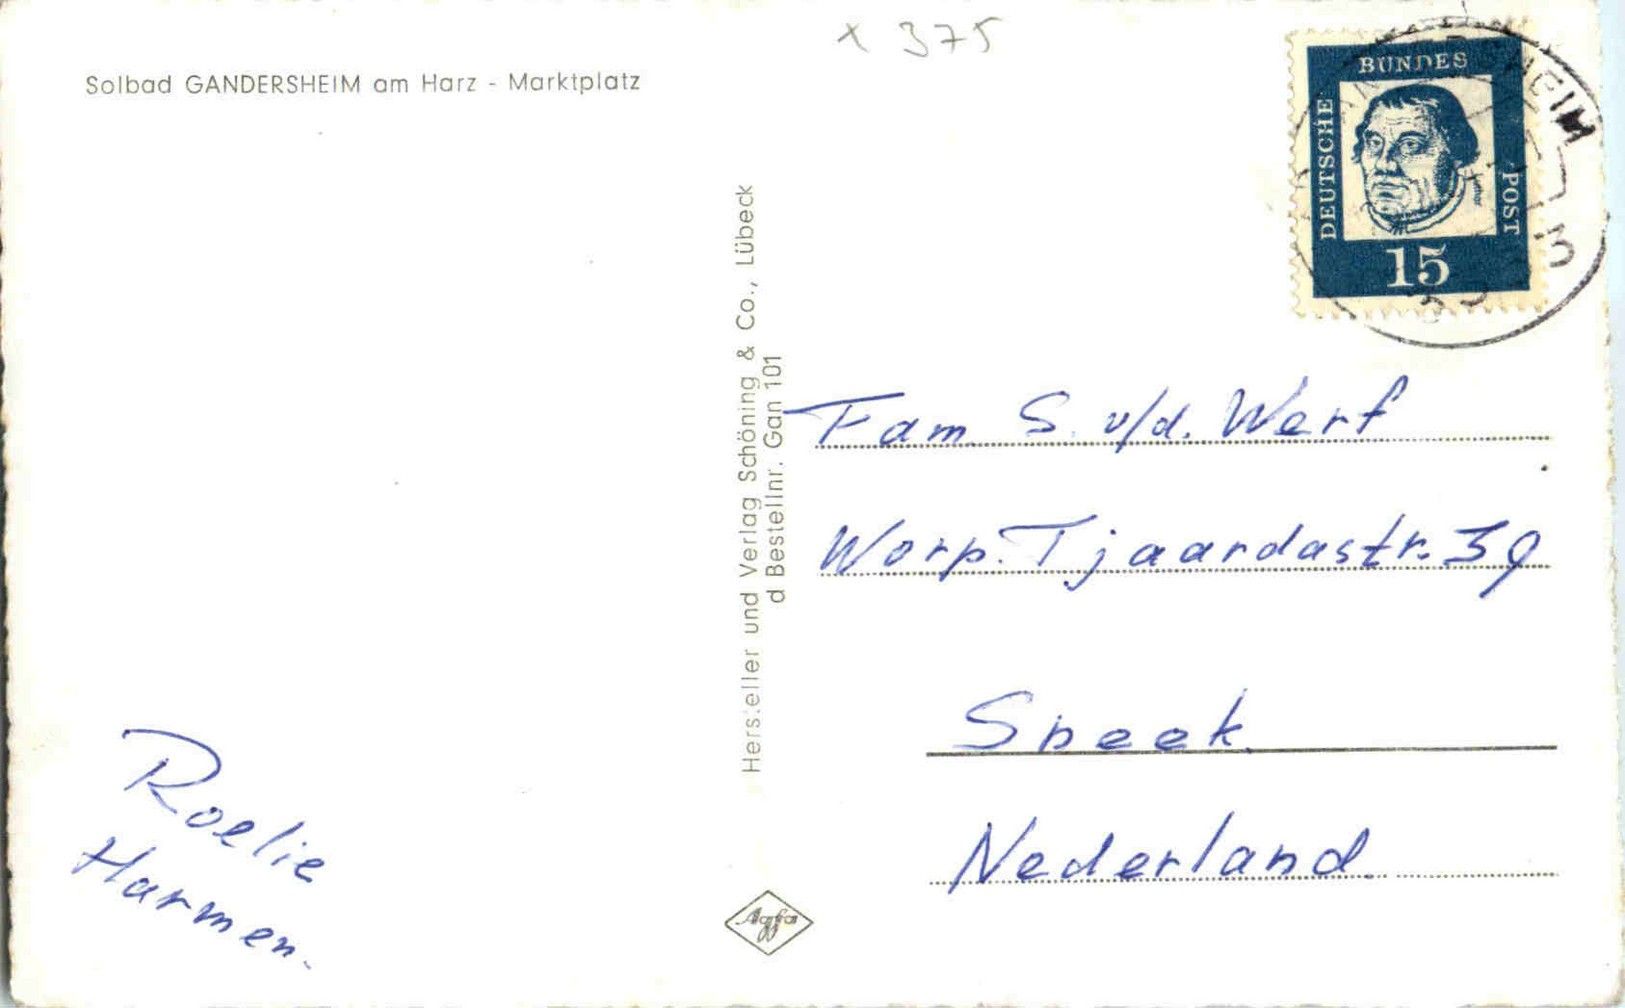 x 375
Solbad GANDERSHEIM am Harz - Marktplatz
BUNDES
DEUTSCHE
POST
15
Hersteller und Verlag Schöning & Co., Lübeck
d Bestellnr. Gan 101
Fam. S. v/d. Werf
Worp. Tjaardastr. 39
Sneek.
Nederland.
Roelie
Harmen.
Agfa